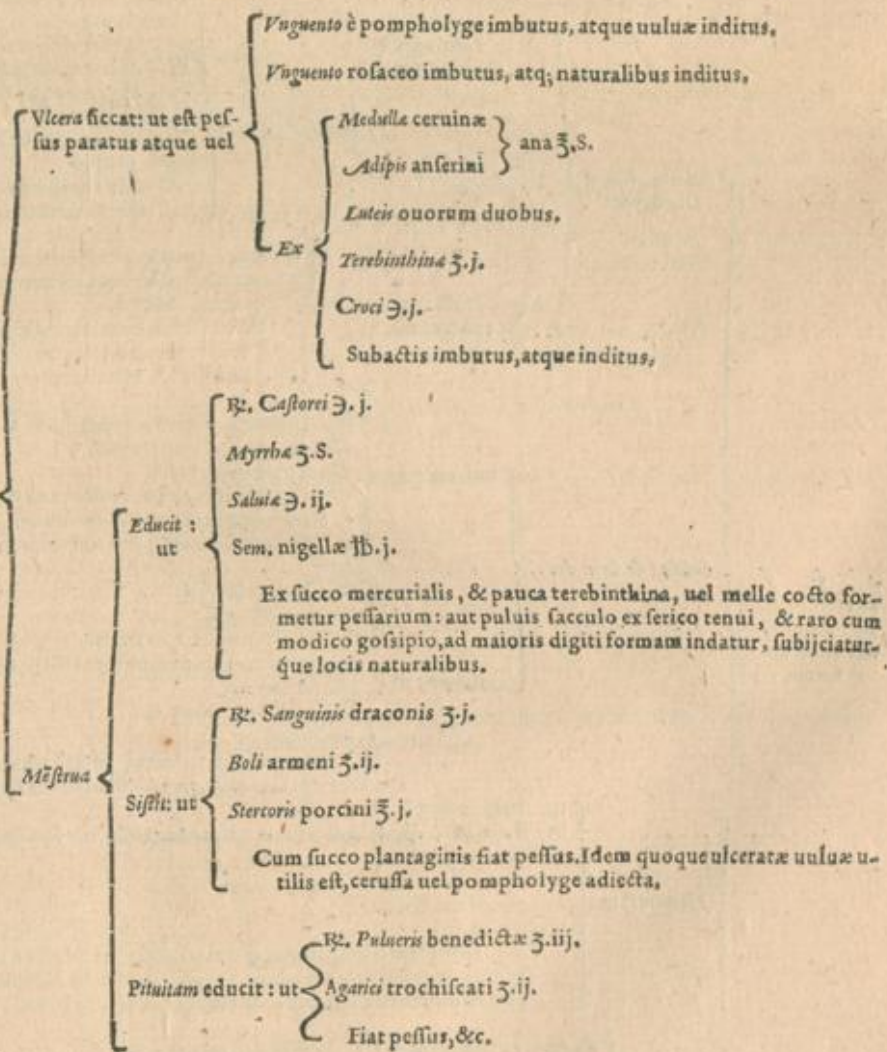 Vnguento è pompholyge imbutus, atque uuluæ inditus.
Vnguento rosaceo imbutus, atq; naturalibus inditus.
Vlcera siccat: ut est pes-
sus paratus atque uel
Ex
Medullæ ceruinæ
Adipis anserini
ana ℥.S.
Luteis ouorum duobus.
Terebinthinæ ʒ.j.
Croci ℈.j.
Subactis imbutus, atque inditus.
Mẽstrua
Educit:
ut
℞. Castorei ℈. j.
Myrrhæ ʒ.S.
Saluiæ ℈. ij.
Sem. nigellæ ℔.j.
Ex succo mercurialis, & pauca terebinthina, uel melle cocto for-
metur pessarium: aut puluis sacculo ex serico tenui, & raro cum
modico gossipio, ad maioris digiti formam indatur, subijciatur-
que locis naturalibus.
Sistit: ut
℞. Sanguinis draconis ʒ.j.
Boli armeni ʒ.ij.
Stercoris porcini ℥.j.
Cum succo plantaginis fiat pessus. Idem quoque ulceratæ uuluæ u-
tilis est, cerussa uel pompholyge adiecta.
Pituitam educit: ut
℞. Pulueris benedictæ ʒ.iij.
Agarici trochiscati ʒ.ij.
Fiat pessus, &c.